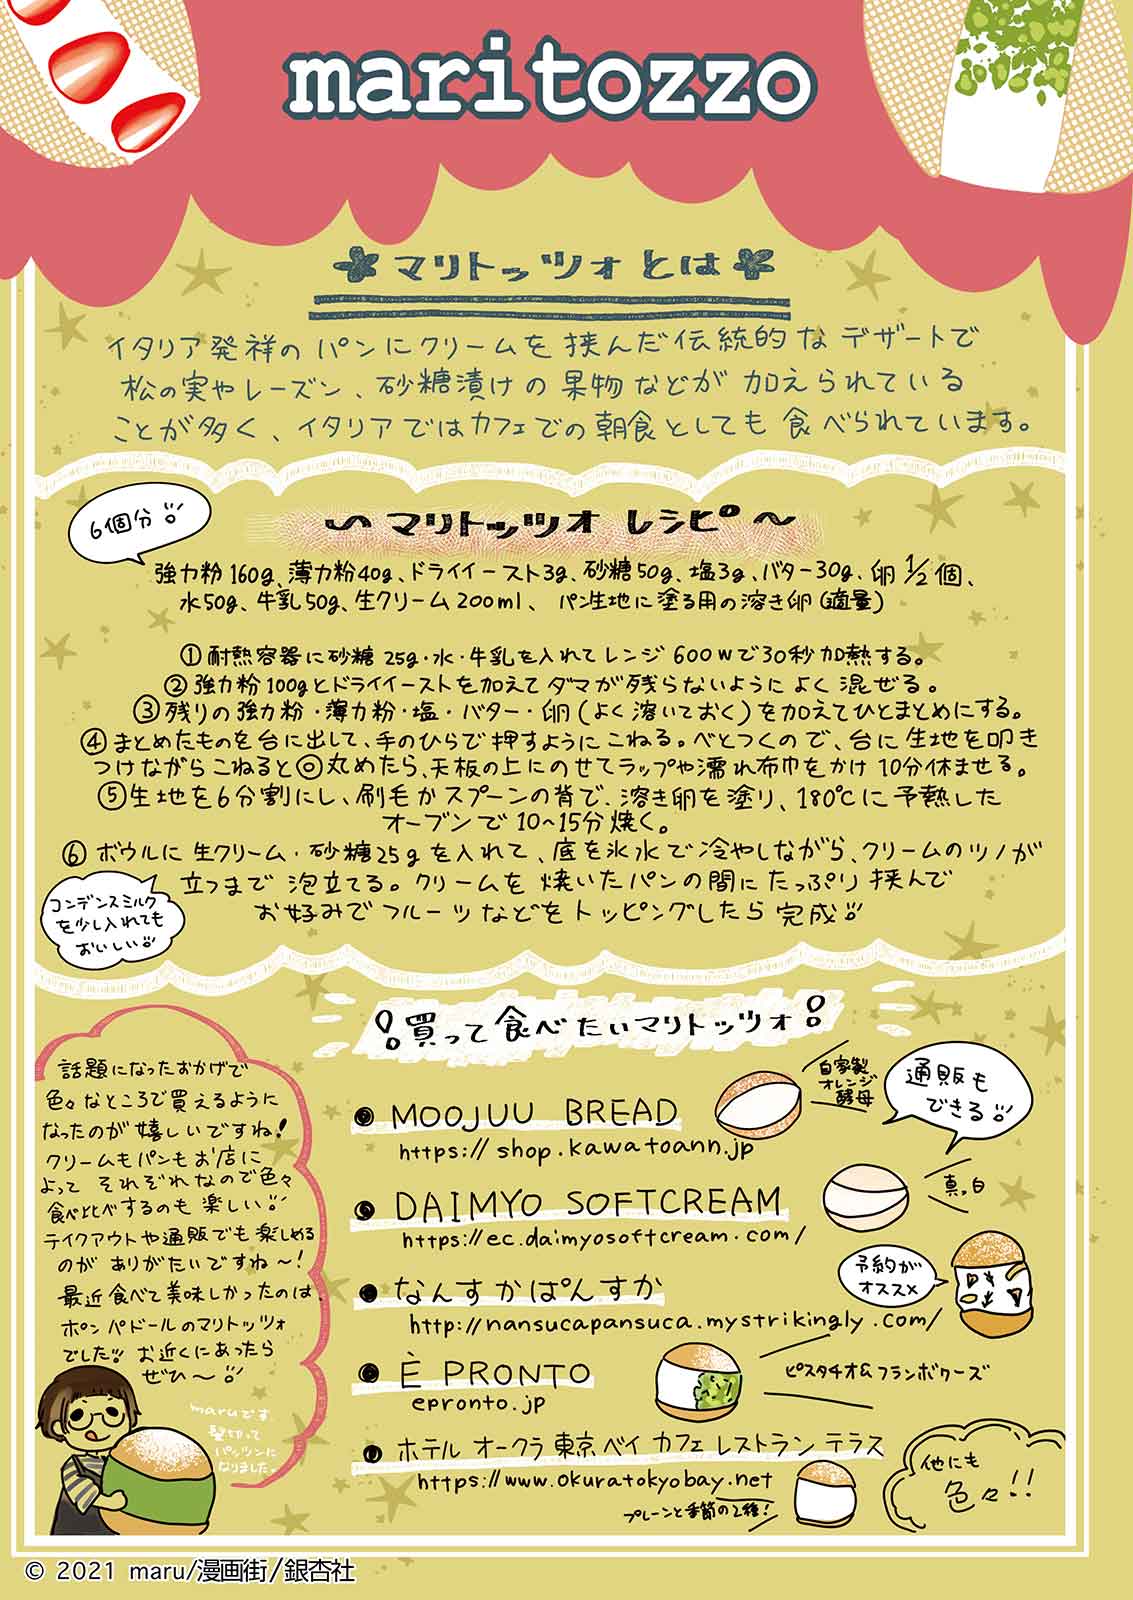 maritozzo
マリトッツォとは
イタリア発祥のパンにクリームを挟んだ伝統的なデザートで
松の実やレーズン、砂糖漬けの果物などが加えられている
ことが多く、イタリアではカフェでの朝食としても食べられています。
6個分
〜マリトッツオ レシピ〜
強力粉160g、薄力粉40g、ドライイースト3g、砂糖50g、塩3g、バター30g、卵1/2個、
水50g、牛乳50g、生クリーム200ml、パン生地に塗る用の溶き卵(適量)
①耐熱容器に砂糖25g・水・牛乳を入れてレンジ600wで30秒加熱する。
②強力粉100gとドライイーストを加えてダマが残らないようによく混ぜる。
③残りの強力粉・薄力粉・塩・バター・卵(よく溶いておく)を加えてひとまとめにする。
④まとめたものを台に出して、手のひらで押すようにこねる。べとつくので、台に生地を叩き
つけながらこねると◎丸めたら、天板の上にのせてラップや濡れ布巾をかけ10分休ませる。
⑤生地を6分割にし、刷毛かスプーンの背で、溶き卵を塗り、180℃に予熱した
オーブンで10~15分焼く。
⑥ボウルに生クリーム・砂糖25gを入れて、底を氷水で冷やしながら、クリームのツノが
立つまで泡立てる。クリームを焼いたパンの間にたっぷり挟んで
お好みでフルーツなどをトッピングしたら完成!!
コンデンスミルク
を少し入れても
おいしい!!
!買って食べたいマリトッツォ!
話題になったおかげで
色々なところで買えるように
なったのが嬉しいですね!
クリームもパンもお店に
よってそれぞれなので色々
食べ比べするのも楽しい!!
テイクアウトや通販でも楽しめる
のがありがたいですね〜!
最近食べて美味しかったのは、
ポンパドールのマリトッツォ
でした!! お近くにあったら
ぜひ〜!!
maruです。
髪切って
パッツンに
なりました。
MOOJUU BREAD
https://shop.kawatoann.jp
自家製
オレンジ
酵母
通販も
できる!!
DAIMYO SOFTCREAM
https://ec.daimyosoftcream.com/
真っ白
なんすかぱんすか
http://nansucapansuca.mystrikingly.com/
予約が
オススメ
È PRONTO
epronto.jp
ピスタチオ&フランボワーズ
ホテル オークラ東京ベイ カフェレストラン テラス
https://www.okuratokyobay.net
プレーンと季節の2種!
他にも
色々!!
© 2021 maru/漫画街/銀杏社